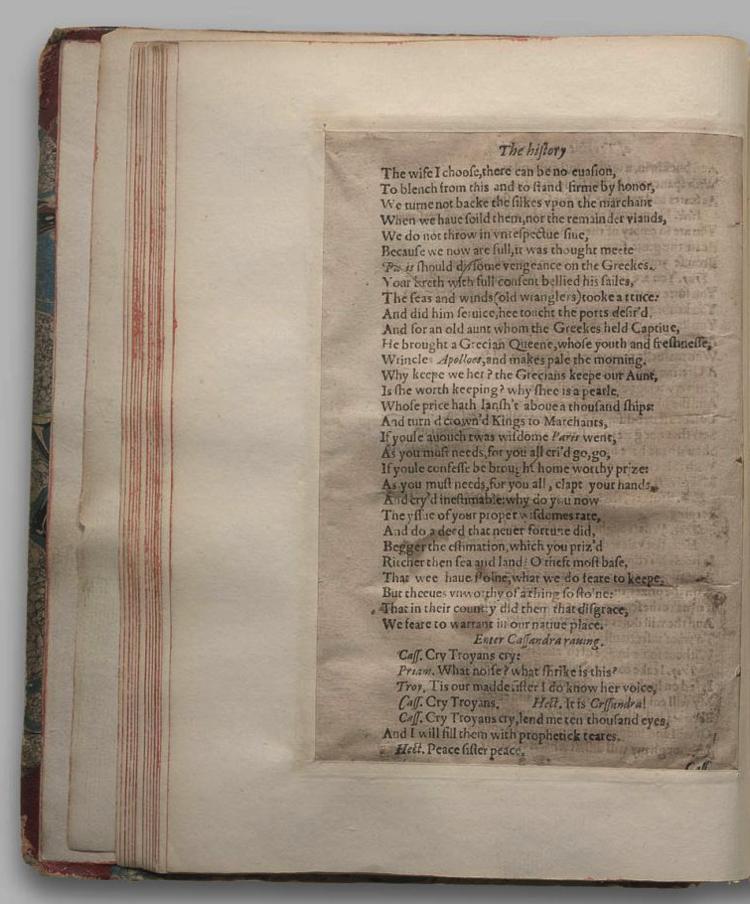 The history
The wife I choose,there can be no euasion,
To blench from this and to stand firme by honor,
We turne not backe the silkes vpon the marchant
When we haue soild them,nor the remainder viands,
We do not throw in vnrespectiue siue,
Because we now are full,it was thought meete
Paris should do some vengeance on the Greekes.
Your breth with full consent bellied his sailes,
The seas and winds(old wranglers)tooke a truce:
And did him seruice,hee toucht the ports desir'd,
And for an old aunt whom the Greekes held Captiue,
He brought a Grecian Queene,whose youth and freshnesse,
Wrincles Apolloes,and makes pale the morning.
Why keepe we her? the Grecians keepe our Aunt,
Is she worth keeping? why shee is a pearle,
Whose price hath lansh't aboue a thousand ships:
And turn'd crown'd Kings to Marchants,
If youle auouch twas wisdome Paris went,
As you must needs,for you all cri'd go,go,
If youle confesse he brought home worthy prize:
As you must needs,for you all, clapt your hands,
And cry'd inestimable:why do you now
The yssue of your proper wisdomes rate,
And do a deed that neuer fortune did,
Begger the estimation,which you priz'd
Ritcher then sea and land? O theft most base,
That wee haue stolne,what we do feare to keepe.
But theeues vnworthy of a thing so sto'ne:
That in their country did them that disgrace,
We feare to warrant in our natiue place.
Enter Cassandra rauing.
Cass. Cry Troyans cry:
Priam. What noise? what shrike is this?
Troy. Tis our madde sister I do know her voice,
Cass. Cry Troyans. Hect. It is Crssandra!
Cass. Cry Troyans cry,lend me ten thousand eyes,
And I will fill them with prophetick teares.
Hect. Peace sister peace.
Cass.